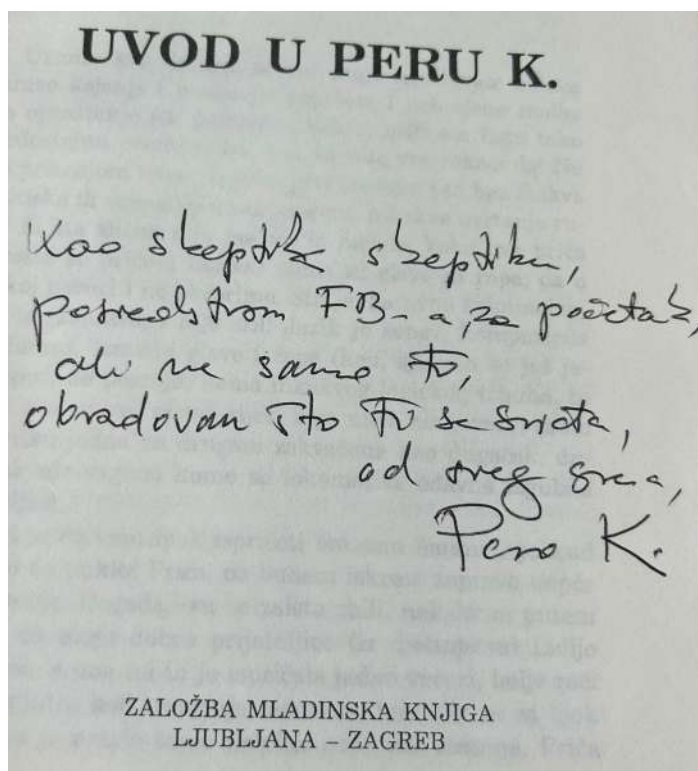 UVOD U PERU K.
Kao skeptik skeptiku,
posredstvom FB-a, za početak,
ali ne samo to,
obradovan što to se sniva,
od sveg srca,
Pero K.
ZALOŽBA MLADINSKA KNJIGA
LJUBLJANA – ZAGREB